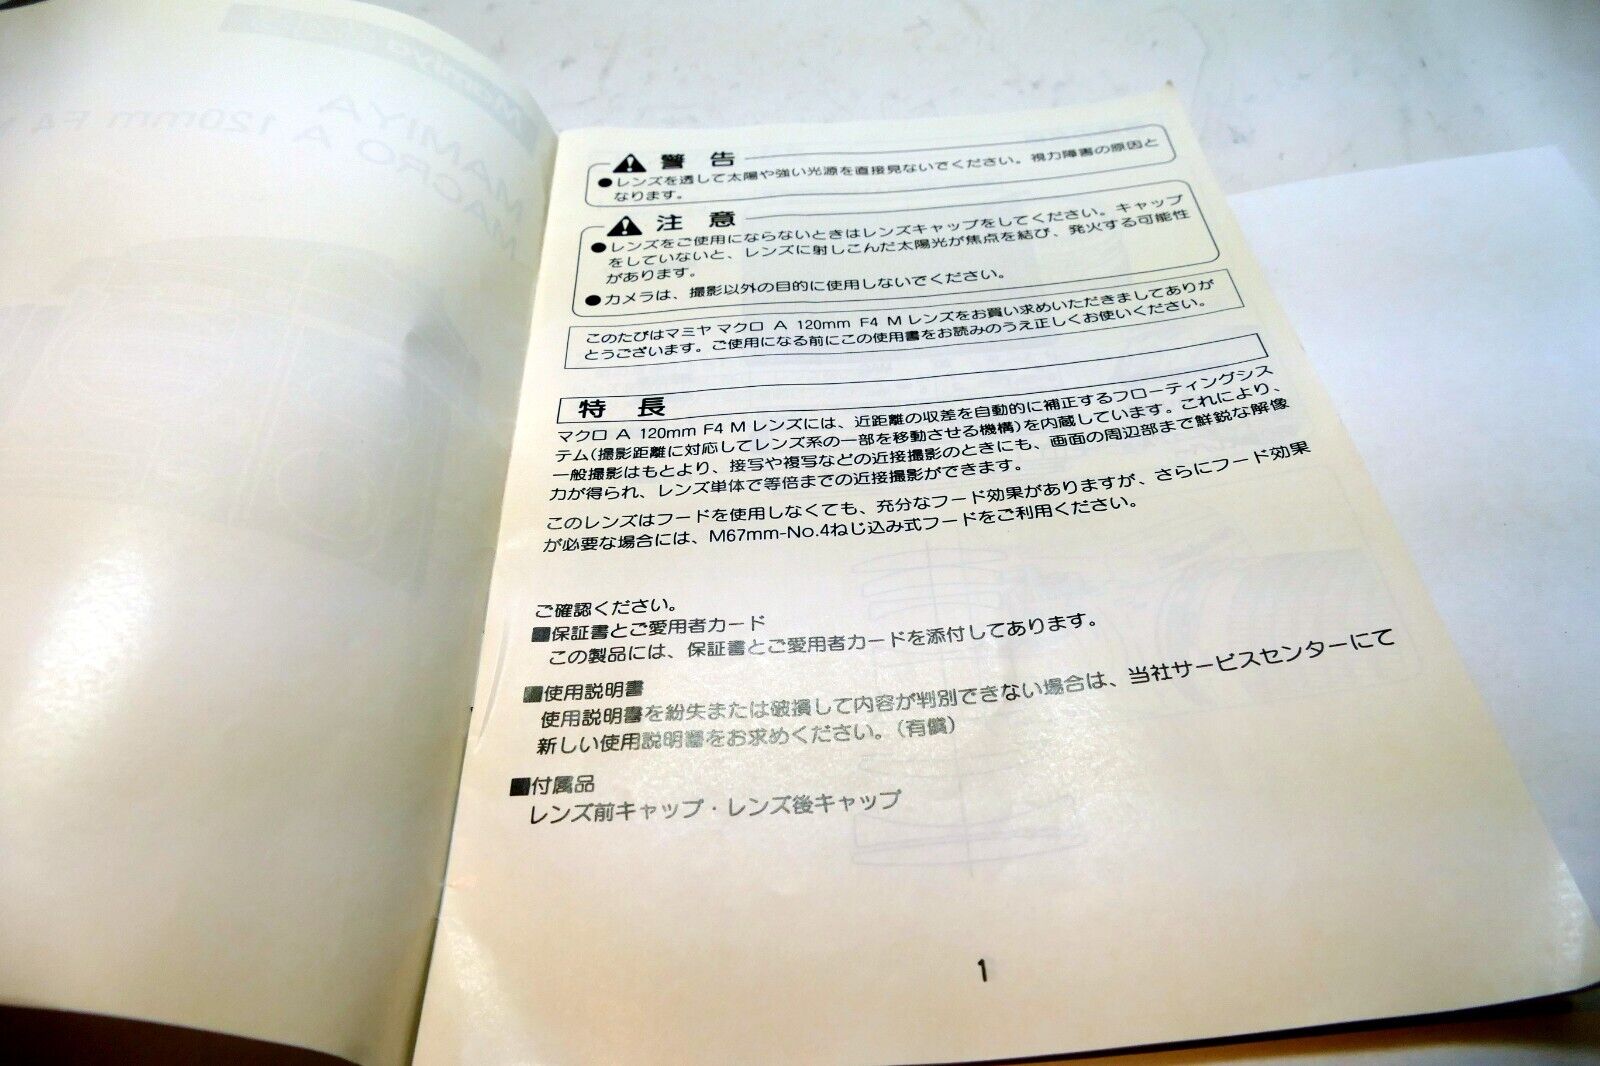 MAMIYA
MACRO A 120mm F4
警告
●レンズを透して太陽や強い光源を直接見ないでください。視力障害の原因と
なります。
注意
●レンズをご使用にならないときはレンズキャップをしてください。キャップ
をしていないと、レンズに射しこんだ太陽光が焦点を結び、発火する可能性
があります。
●カメラは、撮影以外の目的に使用しないでください。
このたびはマミヤ マクロ A 120mm F4 M レンズをお買い求めいただきましてありが
とうございます。ご使用になる前にこの使用書をお読みのうえ正しくお使いください。
特長
マクロ A 120mm F4 M レンズには、近距離の収差を自動的に補正するフローティングシス
テム(撮影距離に対応してレンズ系の一部を移動させる機構)を内蔵しています。これにより、
一般撮影はもとより、接写や複写などの近接撮影のときにも、画面の周辺部まで鮮鋭な解像
力が得られ、レンズ単体で等倍までの近接撮影ができます。
このレンズはフードを使用しなくても、充分なフード効果がありますが、さらにフード効果
が必要な場合には、M67mm-No.4ねじ込み式フードをご利用ください。
ご確認ください。
■保証書とご愛用者カード
この製品には、保証書とご愛用者カードを添付してあります。
■使用説明書
使用説明書を紛失または破損して内容が判別できない場合は、当社サービスセンターにて
新しい使用説明書をお求めください。(有償)
■付属品
レンズ前キャップ・レンズ後キャップ
1